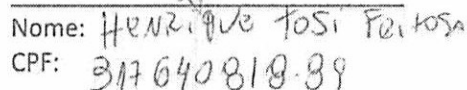 Nome: Henrique Tosi Feitosa
CPF: 317640818-89